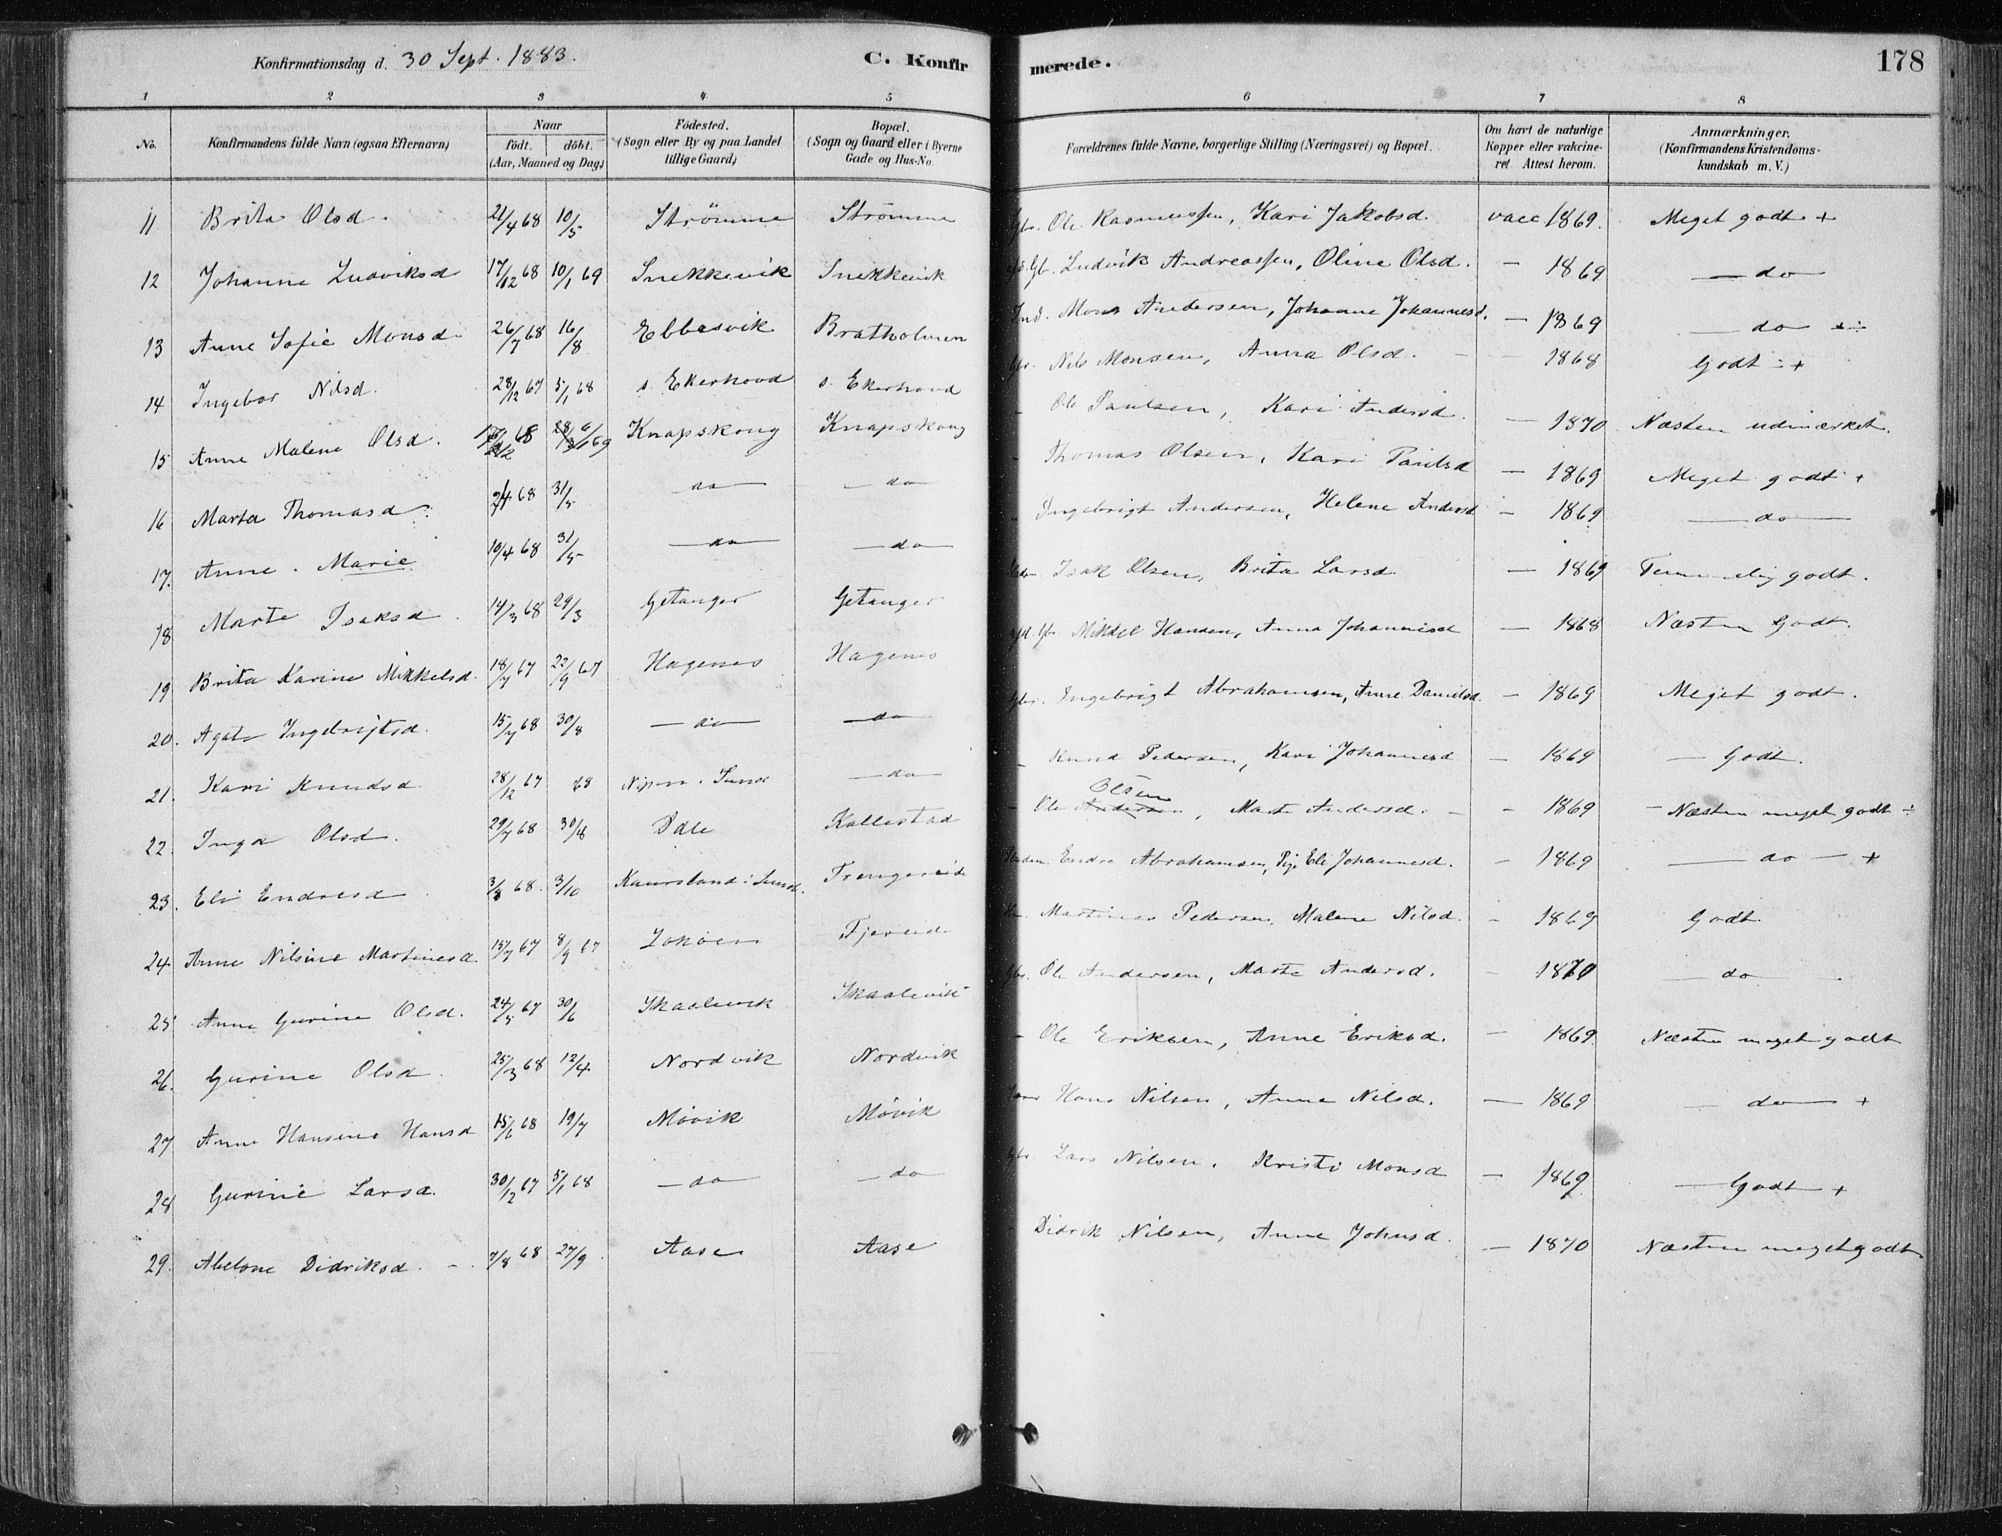 Konfirmationsdag d. 30 Sept. 1883. C. Konfirmerede. 178
1 2 3 4 5 6 7 8
No. Konfirmandens fulde Navn (ogsaa Efternavn) Naar født. døbt. (Aar, Maaned og Dag) Fødested. (Sogn eller By og paa Landet tillige Gaard) Bopæl. (Sogn og Gaard eller i Byerne Gade og Hus-No. Forældrenes fulde Navne, borgerlige Stilling (Næringsvei) og Bopæl. Om havt de naturlige Kopper eller vakcineret Attest herom. Anmærkninger, (Konfirmandens Kristendomskundskab m. V.)
11 Brita Olsd. 21/4 68 10/5 Strømme Strømme Gbr. Ole Rasmussen, Kari Jakobsd. vacc 1869. Meget godt +
12 Johanne Ludviksd 17/12 68 10/1 69 Snekkevik Snekkevik Gbr. Ludvik Andreassen, Oline Olsd. — 1869 — do
13 Anne Sofie Monsd 26/7 68 16/8 Ebbesvik Bratholmen Ind. Mons Andersen, Johanne Johannesd. — 1869 — do
14 Ingebor Nilsd. 28/12 67 5/1 68 s. Ekerhovd s. Ekerhovd Gbr. Nils Monsen, Anna Olsd. — 1868 Godt +
15 Anne Malene Olsd. 68 6/1 69 Knapskoug Knapskoug — Ole Paulsen, Kari Andersd. — 1870 Næsten udmærket.
16 Marta Thomasd 68 31/5 — do — — do — Thomas Olsen, Kari Paulsd — 1869 Meget godt +
17. Anne Marie 10/4 68 31/5 — do — — do — Ingebrigt Andersen, Helene Andersd — 1869 — do —
18 Marte Isaksd. 14/3 68 29/3 Getanger Getanger Isak Olsen, Brita Larsd — 1869 Temmelig godt.
19 Brita Karine Mikkelsd. 18/7 67 22/9 67 Hagenes Hagenes Gbr. Mikkel Hansen, Anna Johannesd — 1868 Næsten Godt.
20. Agate Ingebrigtsd. 15/7 68 30/8 — do — — do Gbr. Ingebrigt Abrahamsen, Anne Danielsd. — 1869 Meget godt.
21. Kari Knudsd 28/12 67 68 Nipen i Sund — do — — Knud Pedersen, Kari Johannesd — 1869 — Godt.
22. Inga Olsd. 29/7 68 30/8 Dale Kallestad — Ole Olsen, Marte Andersd. — 1869 — Næsten meget godt
23. Eli Endresd 68. 3/10 Kaursland i Sund. Trengereid Endre Abrahamsen, Pige Eli Johannesd. — 1869 — do — +
24 Anne Nilsine Martinesd. 15/7 67 8/9 67 Lokøen Fjereid Martines Pedersen, Malene Nilsd. — 1869 Godt
25 Anne Gurine Olsd. 24/5 67 30/6 Skaalevik Skaalevik Gbr. Ole Andersen, Marta Andersd. — 1870 — do —
26. Gurine Olsd. 25/3 68 12/4 Nordvik Nordvik — Ole Eriksen, Anne Eriksd. — 1869 Næsten meget godt
27 Anne Hansine Hansd 15/6 68 19/7 Møvik Møvik Hans Nilsen, Anne Nilsd. — 1869 — do — +
28 Gurine Larsd. 30/12 67 5/1 68 — do — — do Gbr. Lars Nilsen, Kristi Monsd — 1869 — Godt +
29. Abelone Didriksd. — 7/8 68 27/9 Aase Aase — Didrik Nilsen, Anne Johnsd. — 1870 Næsten meget godt.